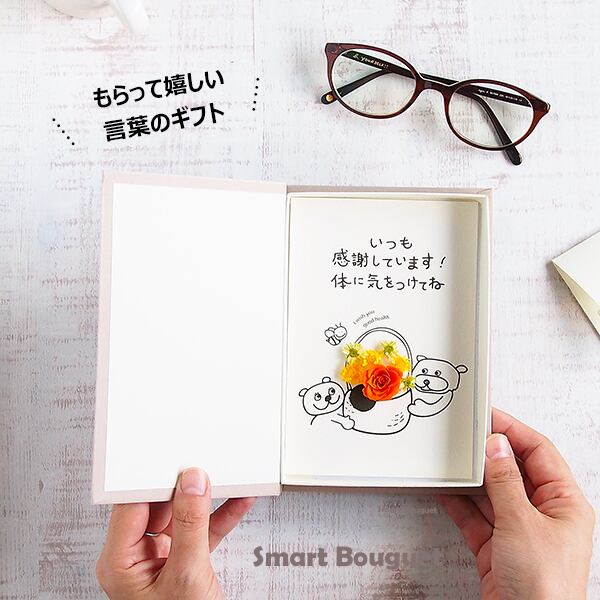 もらって嬉しい
言葉のギフト
いつも
感謝しています!
体に気をつけてね
I wish you
good health.
Smart Bougu